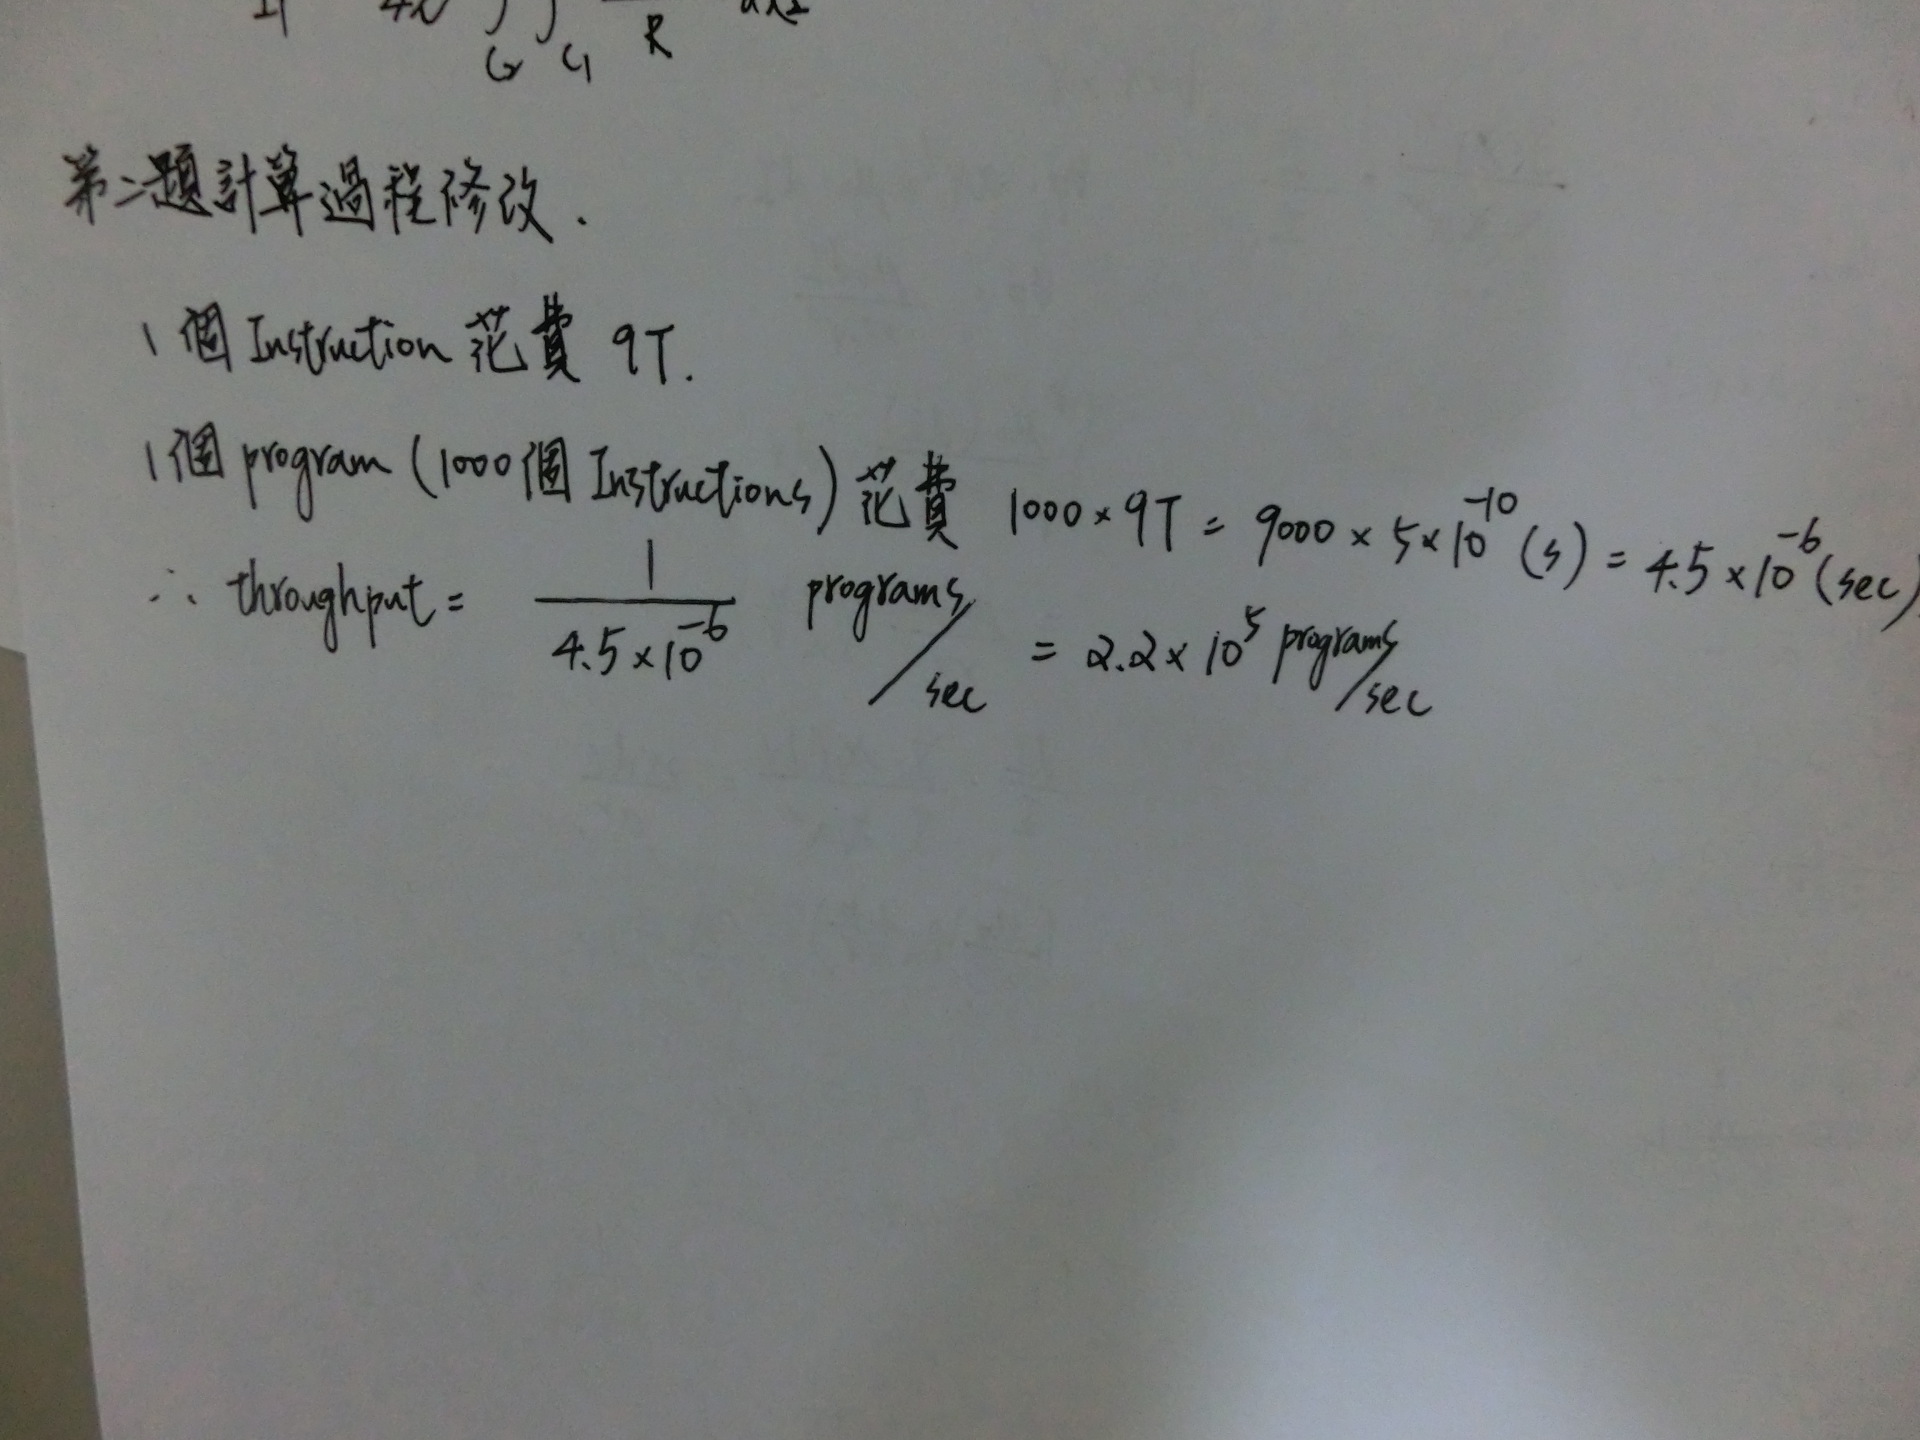 4π ∫ ∫ R
C2 C1
第二題計算過程修改.
1個 Instruction 花費 9T.
1個 program (1000個 Instructions) 花費 1000 × 9T = 9000 × 5 × 10^-10 (s) = 4.5 × 10^-6 (sec)
∴ throughput = 1 / 4.5 × 10^-6 programs/sec = 2.2 × 10^5 programs/sec